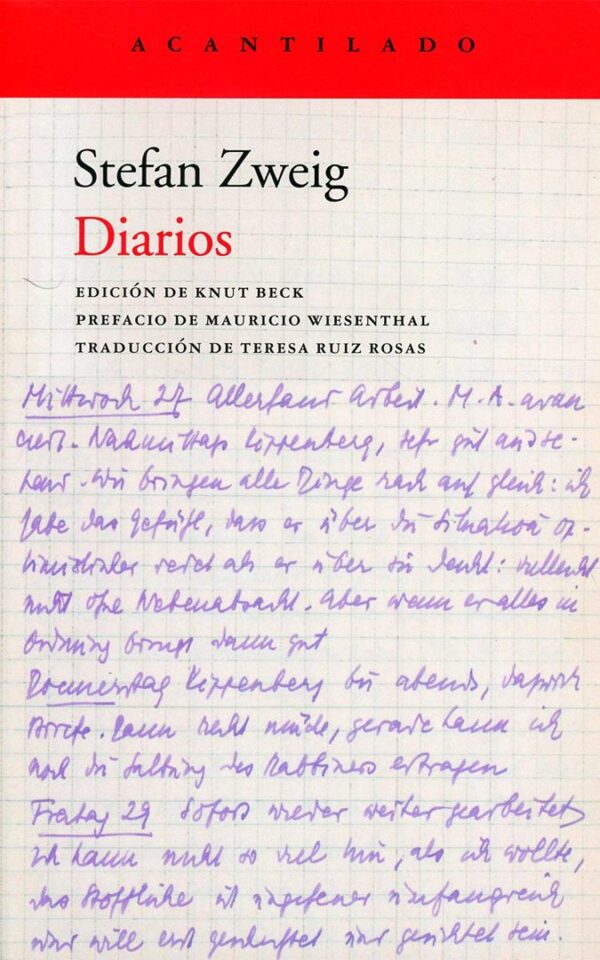 ACANTILADO
Stefan Zweig
Diarios
EDICIÓN DE KNUT BECK
PREFACIO DE MAURICIO WIESENTHAL
TRADUCCIÓN DE TERESA RUIZ ROSAS
Mittwoch 27 Allerhand Arbeit. M. A. avan
ciert. Nachmittags Kippenberg, sehr gut
Wir bringen alle Dinge rasch auf gleich: ich
habe das Gefühl, dass er über die Situation op-
timistischer redet als er über sie denkt: vielleicht
nicht ohne Nebenabsicht. Aber wenn er alles in
Ordnung bringt dann gut
Donnerstag Kippenberg bis abends, dazwischen
Briefe. Dann recht müde, gerade kann ich
noch die des Rabbiners ertragen
Freitag 29 Sofort wieder weitergearbeitet
Ich kann nicht so viel hin, als ich wollte,
das Stoffliche ist ungeheuer umfangreich
und will erst gesichtet sein.